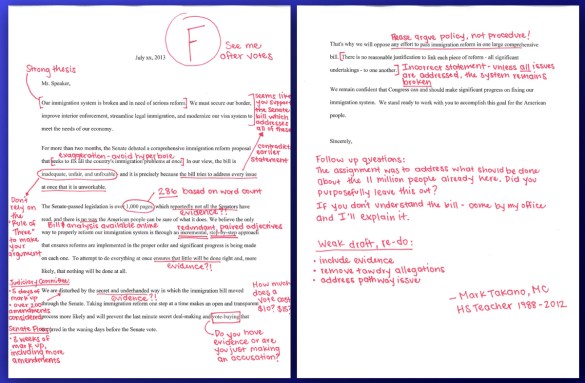 F
See me
after votes
July xx, 2013
Strong thesis
Mr. Speaker,
Our immigration system is broken and in need of serious reform. We must secure our border,
improve interior enforcement, streamline legal immigration, and modernize our visa system to
meet the needs of our economy.
Seems like
you support
the Senate
bill which
addresses
all of these
For more than two months, the Senate debated a comprehensive immigration reform proposal
that seeks to fix all the country's immigration problems at once. In our view, the bill is
Exaggeration - avoid hyperbole.
contradicts
earlier
statement
inadequate, unfair, and unfixable and it is precisely because the bill tries to address every issue
at once that it is unworkable.
Don't
rely on
the
"Rule of
Three"
to make
your
argument
286 based on word count
The Senate-passed legislation is over 1,000 pages which reportedly not all the Senators have
evidence?!
read, and there is no way the American people can be sure of what it does. We believe the only
Bill & analysis available online
redundant paired adjectives
way to properly reform our immigration system is through an incremental, step-by-step approach
that ensures reforms are implemented in the proper order and significant progress is being made
on each one. To attempt to do everything at once ensures that little will be done right and, more
evidence?!
likely, that nothing will be done at all.
Judiciary Committee:
• 5 days of
mark up
• over 200
amendments
considered
Senate Floor
• 3 weeks of
mark up,
including more
amendments
We are disturbed by the secret and underhanded way in which the immigration bill moved
evidence?!
through the Senate. Taking immigration reform one step at a time makes an open and transparent
process more likely and will prevent the last minute secret deal-making and vote-buying that
occurred in the waning days before the Senate vote.
How much
does a
vote cost
$10? $15?
Do you have
evidence or are
you just making
an accusation?
Please argue policy, not procedure!
That's why we will oppose any effort to pass immigration reform in one large comprehensive
bill. There is no reasonable justification to link each piece of reform - all significant
undertakings - to one another.
Incorrect statement - unless all issues
are addressed, the system remains
broken
We remain confident that Congress can and should make significant progress on fixing our
immigration system. We stand ready to work with you to accomplish this goal for the American
people.
Sincerely,
Follow up questions:
The assignment was to address what should be done
about the 11 million people already here. Did you
purposefully leave this out?
If you don't understand the bill - come by my office
and I'll explain it.
Weak draft, re-do:
• include evidence
• remove tawdry allegations
• address pathway issue
- Mark Takano, MC
HS Teacher 1988-2012